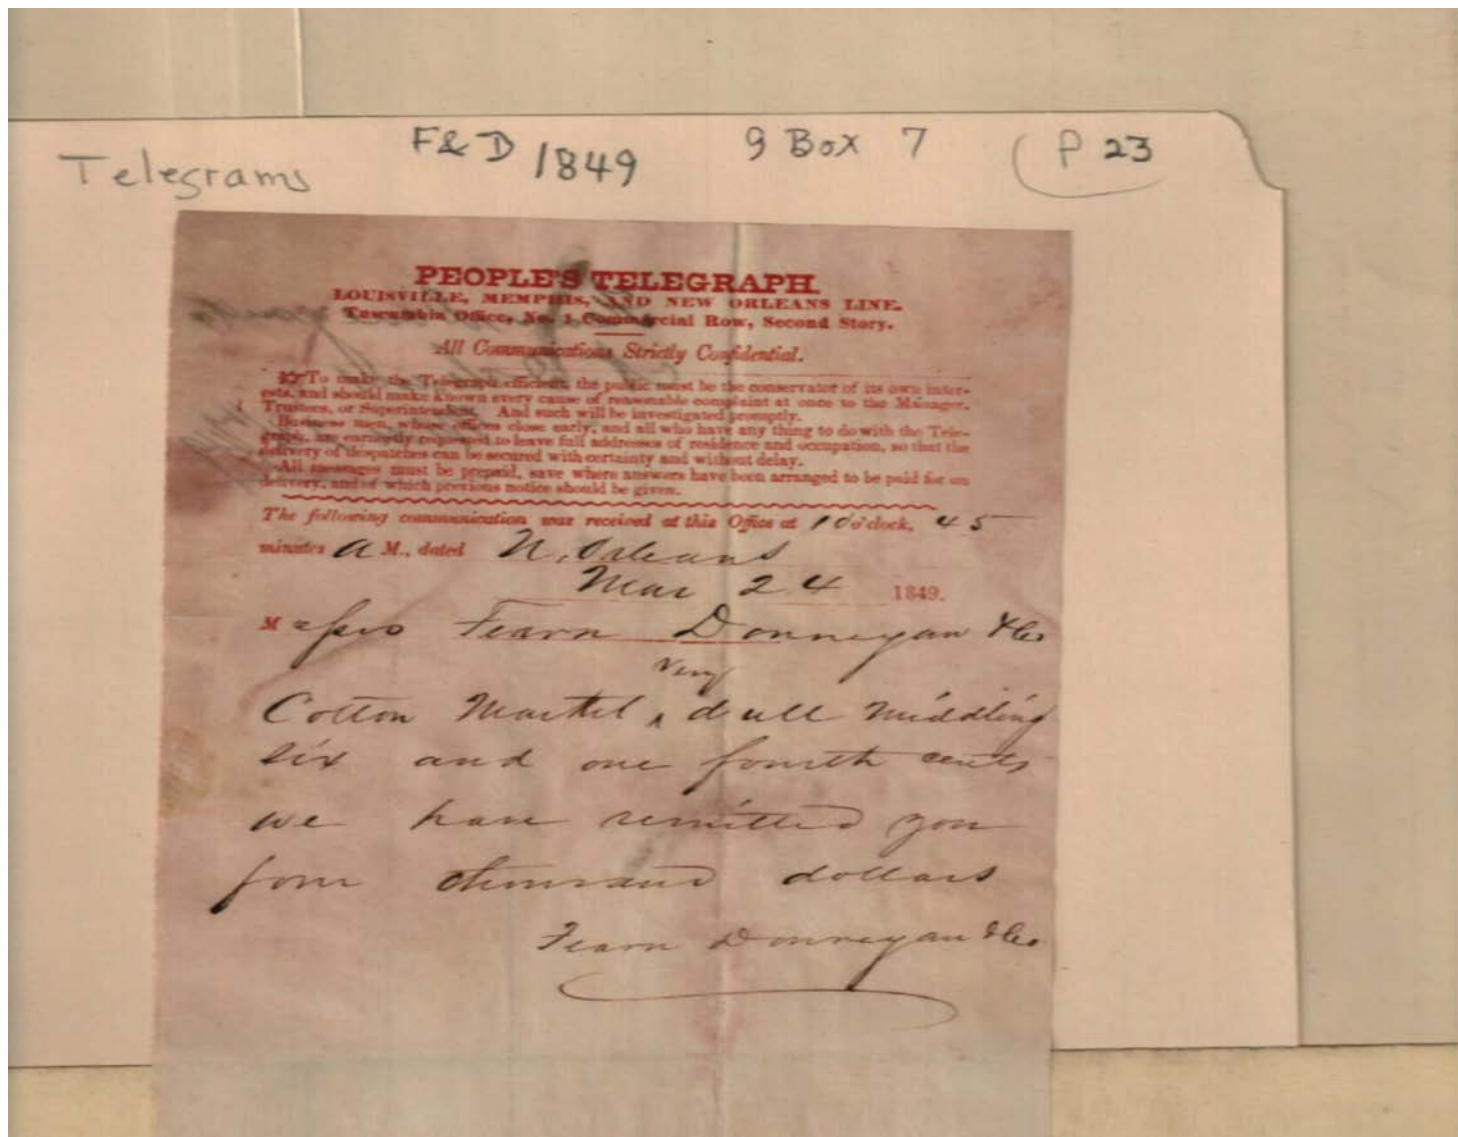 Telegrams F&D 1849 9 Box 7 P 23
PEOPLE'S TELEGRAPH.
LOUISVILLE, MEMPHIS, AND NEW ORLEANS LINE.
Tuscumbia Office, No. 1 Commercial Row, Second Story.
All Communications Strictly Confidential.
☞To make the Telegraph efficient, the public must be the conservator of its own inter-
ests, and should make known every cause of reasonable complaint at once to the Manager,
Trustees, or Superintendent. And such will be investigated promptly.
Business men, whose offices close early, and all who have any thing to do with the Tele-
graph, are earnestly requested to leave full addresses of residence and occupation, so that the
delivery of despatches can be secured with certainty and without delay.
All messages must be prepaid, save where answers have been arranged to be paid for on
delivery, and of which previous notice should be given.
The following communication was received at this Office at 10 o'clock, 45
minutes A M., dated N. Orleans
Mar 24 1849.
Messrs Fearn Donnegan & Co
very
Cotton Market ‸ dull middling
six and one fourth cents
we have remitted you
four thousand dollars
Fearn Donnegan & Co